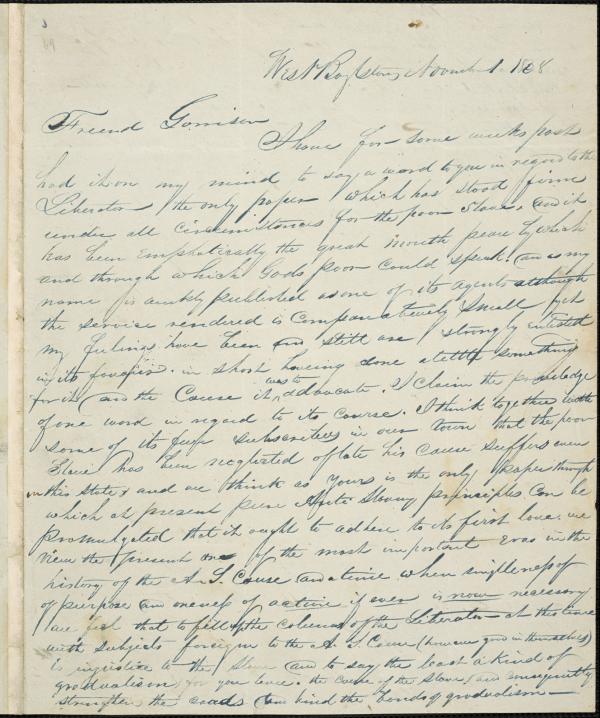 West Boylston, November 1. 1838
Freend Garrison
I have for some weeks past
had it on my mind to say a word to you in regard to the
Liberator the only paper which has stood firm
under all circumstances for the poor Slave, and it
has been emphatically the great mouth peace by which
and through which Gods poor could speak. and as my
name is weekly published as one of its agents although
the service rendered is comparatively small yet
my feelings have been and still are strongly enlisted
in its favour. in short having done a little something
for it (and the Cause it was to advocate. I claim the priviledge
of one word in regard to its course. I think together with
some of its few subscribers in our town that the poor
Slave has been neglected of late his cause suffers even
in this State & and we think as yours is the only paper through
which at present pure Anti Slavery principles can be
promulgated that it ought to adhere to its first love. we
view the present as one of the most important Eras in the
history of the A. S. Cause and a time when singleness of
of purpose and oneness of action if ever is now necessary
we feel that to fill up the columns of the Liberator at this time
with subjects foreign to the A. S. Cause (however good in themselves)
is injustice to the Slave and to say the least a kind of
gradualism for you leave the cause of the Slave, and consequently
strengthen the and bind the bonds of gradualism—